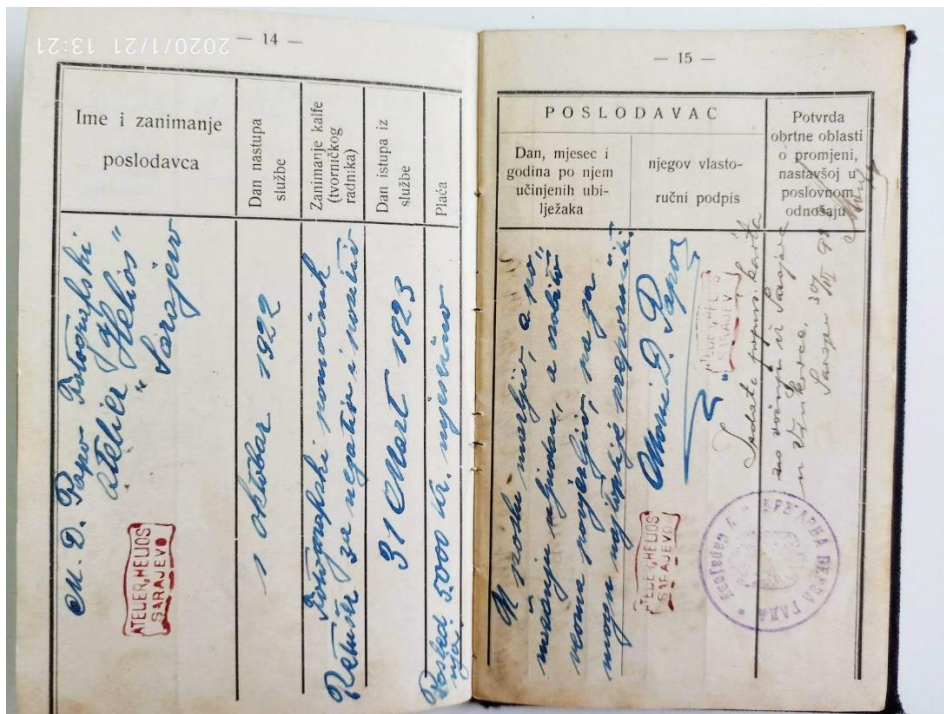 2020/1/21 13:21
— 14 —
Ime i zanimanje
poslodavca
Dan nastupa
službe
Zanimanje kalfe
(tvorničkog
radnika)
Dan istupa iz
službe
Plaća
M. D. Papo Fotografski
atelier „Helios"
Sarajevo
ATELIER „HELIOS"
SARAJEVO
1 oktobar 1922
Fotografski pomoćnik
Retušer za negativ i pozitiv
31 Mart 1923
Posled
nja: 5.000 mjesečno
— 15 —
POSLODAVAC
Dan, mjesec i
godina po njem
učinjenih ubi-
lježaka
njegov vlasto-
ručni podpis
Potvrda
obrtne oblasti
o promjeni,
nastavšoj u
poslovnom
odnošaju
U poslu marljiv, a po
našanju uljudan, a nadasve
veoma povjerljiv, te ga
mogu najtoplije preporučiti.
Moric D. Papo
ATELIER „HELIOS"
SARAJEVO
ATELIER „HELIOS"
SARAJEVO
Izdata popus. karta
za vožnju iz Sarajeva
u Vinkovce.
Sarajevo 30/III 923